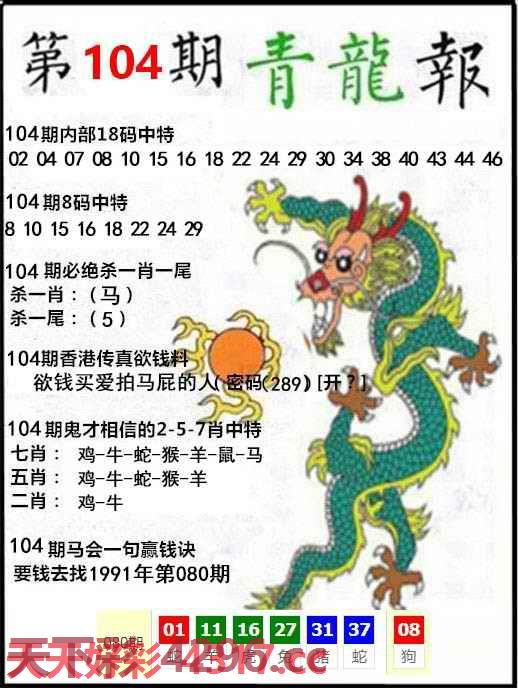 第104期青龍報
104期内部18码中特
02 04 07 08 10 15 16 18 22 24 29 30 34 38 40 43 44 46
104期8码中特
8 10 15 16 18 22 24 29
104期必绝杀一肖一尾
杀一肖：（马）
杀一尾：（5）
104期香港传真欲钱料
欲钱买爱拍马屁的人(密码(289)[开？]
104期鬼才相信的2-5-7肖中特
七肖： 鸡-牛-蛇-猴-羊-鼠-马
五肖： 鸡-牛-蛇-猴-羊
二肖： 鸡-牛
104期马会一句赢钱诀
要钱去找1991年第080期
080期 01 11 16 27 31 37 08
蛇 虎 兔 猪 蛇 狗
天下好彩4296.cc